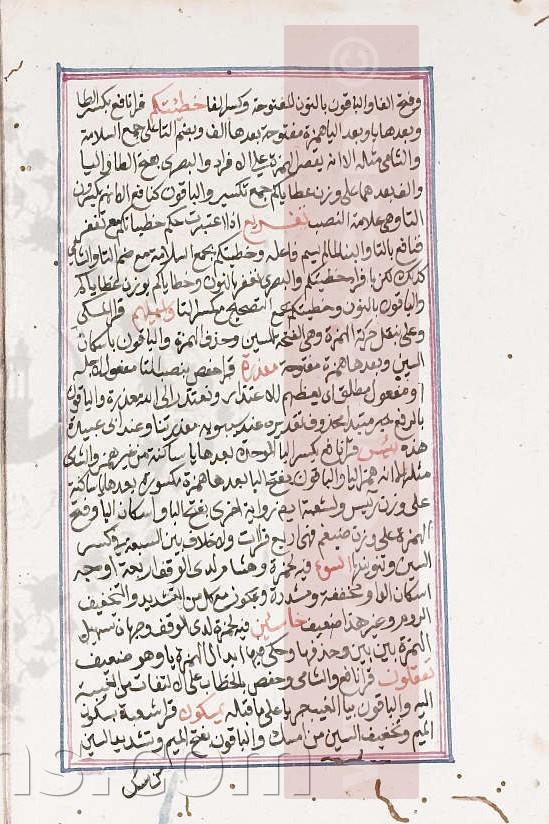 وفتح الفا والباقون بالنون المفتوحة وكسر الفا خطيئتكم قرا نافع بكسر الطا
وبعدها يا وبعد اليا همزة مفتوحة بعدها الف وبضم التا على جمع السلامة
والشامى مثله الا انه يقصر الهمزة على الافراد والبصرى بفتح الطا واليا
والف بعدهما على وزن عطاياكم جمع تكسير والباقون كنافع الا انهم يكسرون
التا وهى علامة النصب تفريع اذا اعتبرت حكم خطيئاتكم مع تغفر
فنافع بالتا والبنا لما لم يسم فاعله وخطيئتكم بجمع السلامة مع ضم التا والشامى
كذلك لكن يقرا خطيئتكم والبصرى نغفر بالنون وخطاياكم بوزن عطاياكم
والباقون بالنون وخطيئتكم بجمع التصحيح مع كسر التا واسئلهم قرا المكى
وعلى بنقل حركة الهمزة وهى الفتحة للسين وحذف الهمزة والباقون باسكان
السين وبعدها همزة مفتوحة معذرة قرا حفص بنصب التا مفعول لاجله
او مفعول مطلق اى نعظهم للاعتذار ونعتذر الى الله معذرة والباقون
بالرفع خبر مبتدا محذوف تقديره عند سيبويه معذرتنا وعند ابى عبيدة
هذه بئيس قرا نافع بكسر البا الموحدة بعدها يا ساكنة من غير همز والشامى
مثله الا انه همز اليا والباقون بفتح البا بعدها همزة مكسورة بعدها يا ساكنة
على وزن رئيس ولشعبة ايضا رواية اخرى بفتح البا واسكان اليا وفتح
الهمزة على وزن ضيغم فهى اربع قراات ولا خلاف بين السبعة فى كسر
السين وتنوينها السوء فيه لحمزة وهشام لدى الوقف اربعة اوجه
اسكان الواو مخففة ومشددة ويكون مع كل من التشديد والتخفيف
الروم وغير هذا ضعيف خاسئين فيه لحمزة لدى الوقف وجهان تسهيل
الهمزة بين بين وحذفها وحكى فيها ابدال الهمزة يا وهو ضعيف
تعقلون قرا نافع والشامى وحفص بالخطاب على الالتفات من الغيبة
اليه والباقون بيا الغيب جريا على ما قبله يمسكون قرا شعبة بسكون
الميم وتخفيف السين من امسك والباقون بفتح الميم وتشديد السين
ns.com